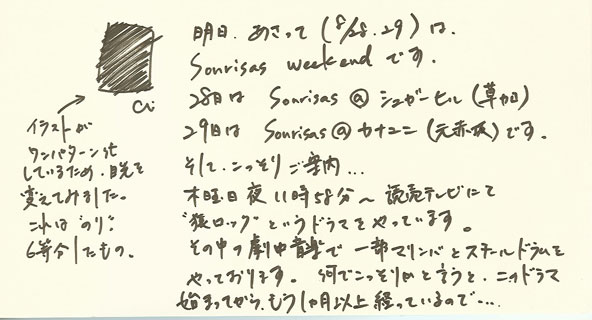 明日、あさって (8/28.29) は、
Sonrisas weekend です。
28日は Sonrisas @ シュガーヒル (草加)
29日は Sonrisas @ カナユニ (元赤坂) です。
そして、こっそりご案内...
木曜日夜11時58分〜 読売テレビにて
"猿ロック" というドラマをやっています。
その中の劇中音楽で 一部マリンバとスチールドラムを
やっております。 何でこっそりかと言うと、このドラマ
始まってから、もう1ヶ月以上経っているので....
イラストが
ワンパターン化
しているため、目先を
変えてみました。
これは "のり"。
6等分したもの。